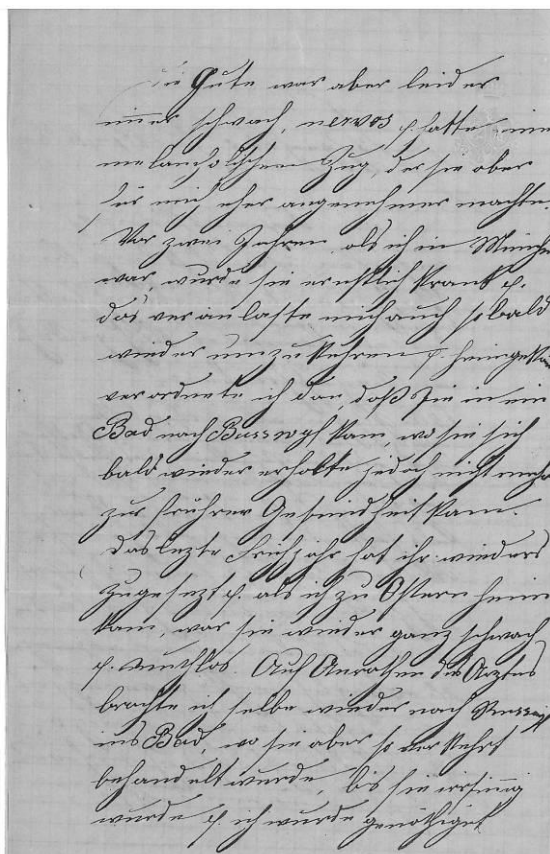 Die Gute war aber leider
immer schwach, nervos p. hatte eine
melancholischen Zug, der sie aber
für mich eher angenehmer machte.
Vor zwei Jahren als ich in Münche
war, wurde sie ernstlich krank p.
das veranlasste mich auch sobald
wieder umzukehren p. heimgeko
verordnete ich dan, daß Sie in ein
Bad nach Busswyl kam, wo sie sich
bald wieder erholte jedoch nicht mehr
zur frührer Gesundheit kam.
Das lezte Frühjahr hat ihr wieders
zugesezt p. als ich zu Ostern heim
kam, war sie wieder ganz schwach
p. muthlos. Auf Anrathen des Arztes
brachte ich selbe wieder nach
ins Bad, wo sie aber so verkehrt
behandelt wurde, bis sie irrsinnig
wurde p. ich wurde genöthiget